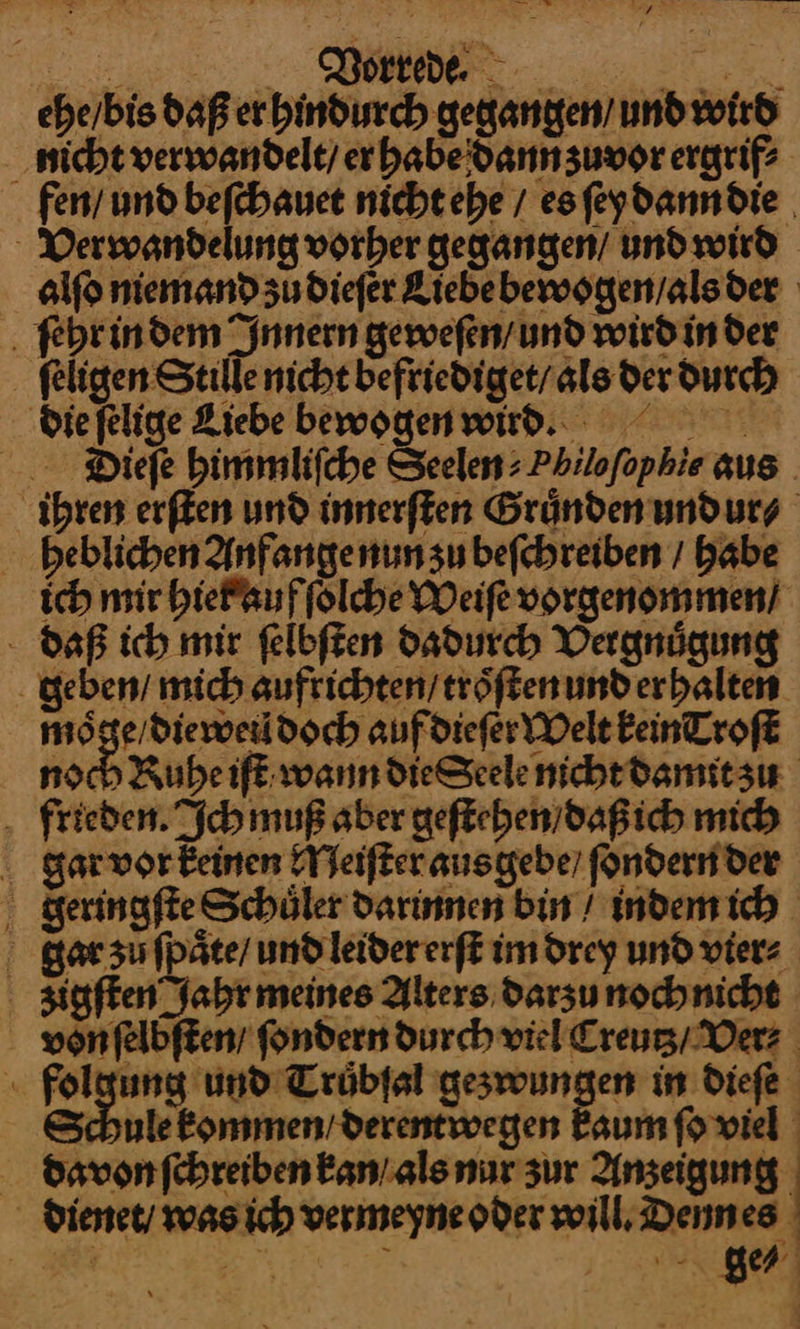 Vorrede.
ehe/bis daß er hindurch gegangen/ und wird
nicht verwandelt/ er habe dann zuvor ergrif⸗
fen/ und beſchauet nicht ehe / es ſey dann die
Verwandelung vorher gegangen/ und wird
alſo niemand zu dieſer Liebe bewogen/als der
ſehr in dem Innern geweſen/ und wird in der
ſeligen Stille nicht befriediget/ als der durch
die ſelige Liebe bewogen wird.
Dieſe himmliſche Seelen⸗Philoſophie aus
ihren erſten und innerſten Gruͤnden und ur⸗
heblichen Anfange nun zu beſchreiben / habe
ich mir hier auf ſolche Weiſe vorgenommen/
daß ich mir ſelbſten dadurch Vergnuͤgung
geben/ mich aufrichten/ troͤſten und erhalten
moͤge/dieweil doch auf dieſer Welt kein Troſt
noch Ruhe iſt wann die Seele nicht damit zu
frieden. Ich muß aber geſtehen/daß ich mich
gar vor keinen Meiſter ausgebe/ ſondern der
geringſte Schuͤler darinnen bin / indem ich
gar zu ſpaͤte/ und leider erſt im drey und vier⸗
zigſten Jahr meines Alters darzu noch nicht
von ſelbſten/ ſondern durch viel Creutz/ Ver⸗
folgung und Truͤbſal gezwungen in dieſe
Schule kommen/ derentwegen kaum ſo viel
davon ſchreiben kan/ als nur zur Anzeigung
dienet/ was ich vermeyne oder will. Denn es
ge⸗